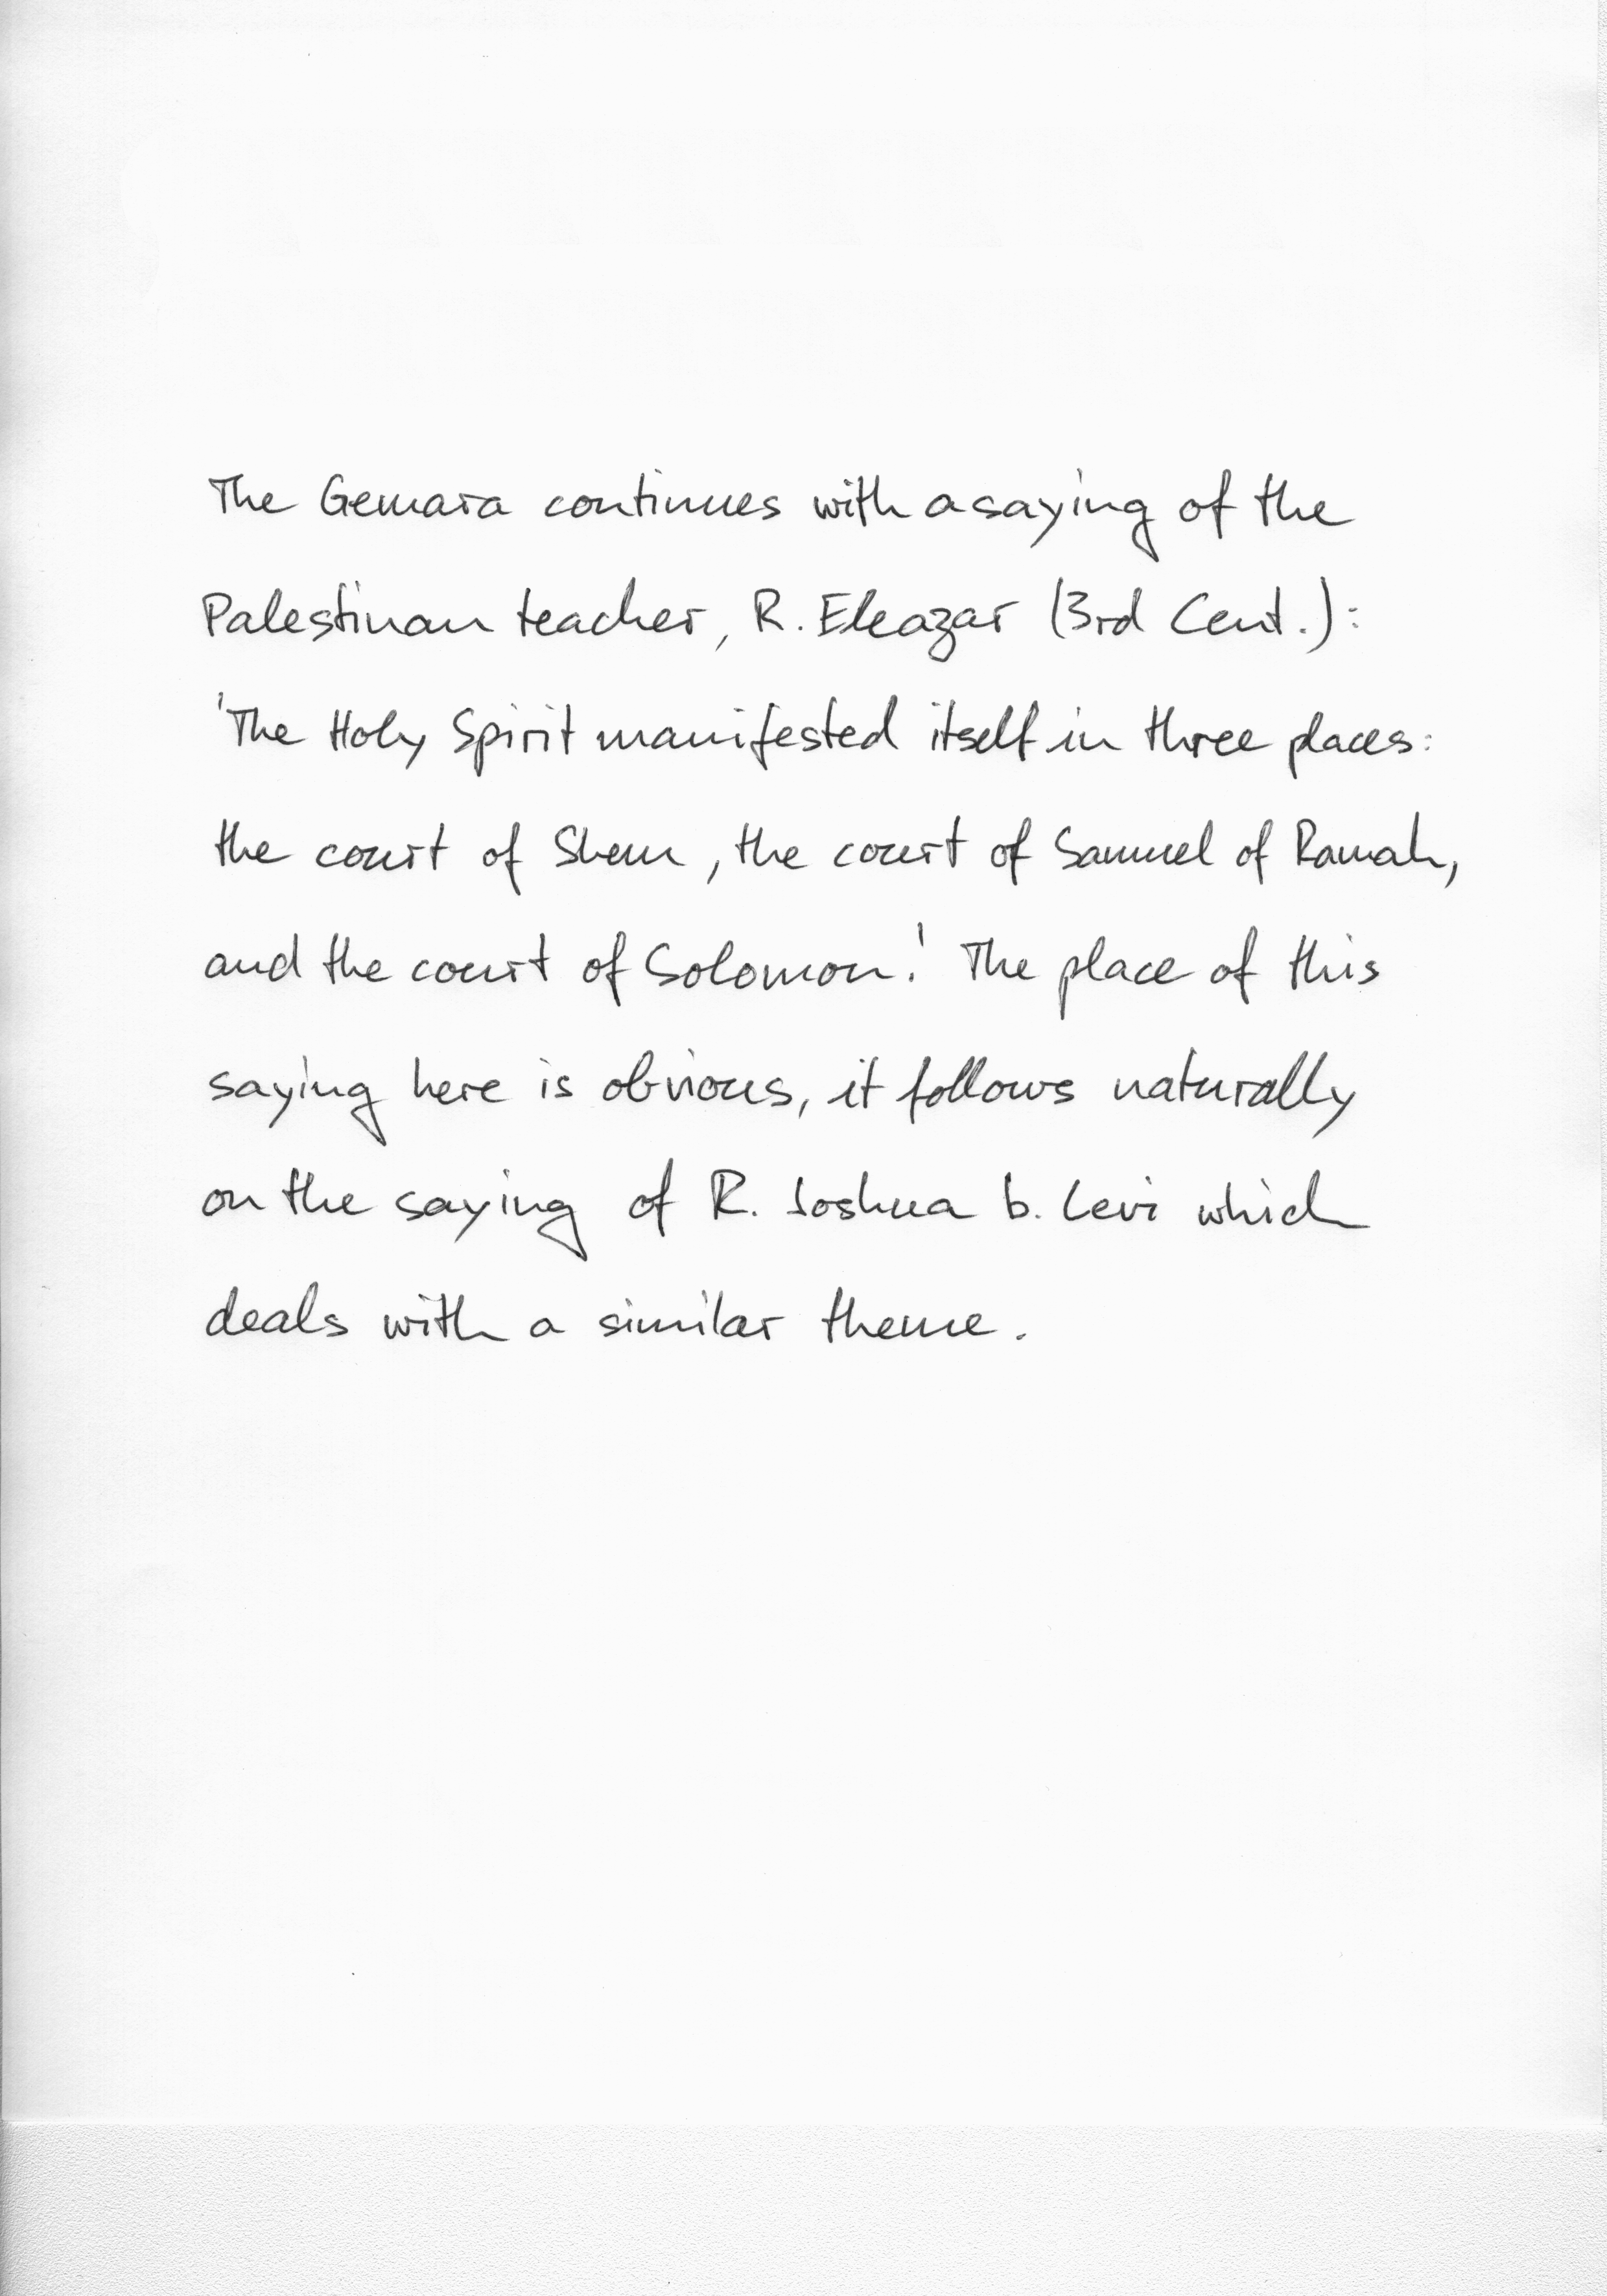 The Gemara continues with a saying of the
Palestinan teacher, R. Eleazar (3rd Cent.):
'The Holy Spirit manifested itself in three places:
the court of Shem, the court of Samuel of Ramah,
and the court of Solomon.' The place of this
saying here is obvious, it follows naturally
on the saying of R. Joshua b. Levi which
deals with a similar theme.